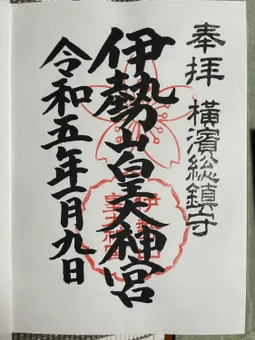 奉拝 横濱総鎮守
伊勢山皇大神宮
令和五年一月九日